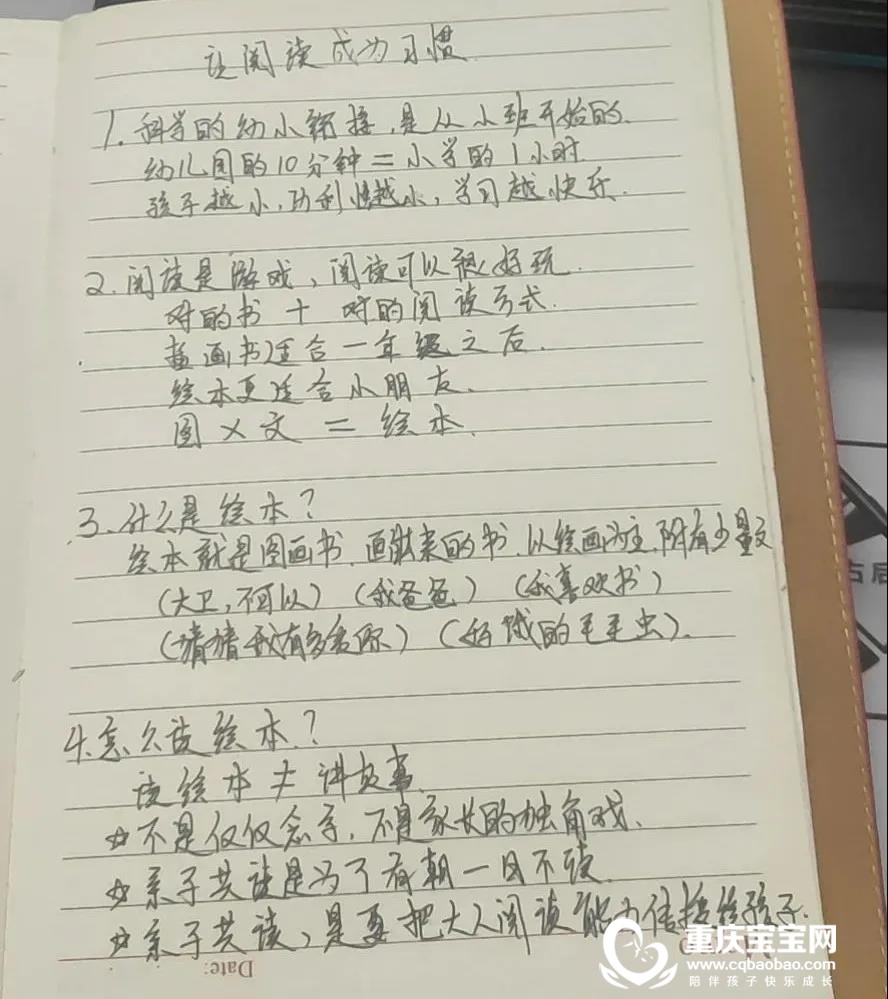 让阅读成为习惯
1. 科学的幼小衔接,是从小班开始的.
幼儿园的10分钟=小学的1小时
孩子越小,功利性越小,学习越快乐.
2. 阅读是游戏,阅读可以很好玩.
对的书 + 对的阅读方式.
插画书适合一年级之后.
绘本更适合小朋友.
图×文=绘本.
3. 什么是绘本?
绘本就是图画书.画出来的书.以绘画为主.附有少量文
(大卫,不可以)(我爸爸)(我喜欢书)
(猜猜我有多爱你)(好饿的毛毛虫).
4.怎么读绘本?
读绘本≠讲故事.
☆不是仅仅念字,不是家长的独角戏.
☆亲子共读是为了有朝一日不读.
☆亲子共读,是要把大人阅读能力传接给孩子.
Date:
重庆宝宝网
www.cqbaobao.com
陪伴孩子快乐成长
古后